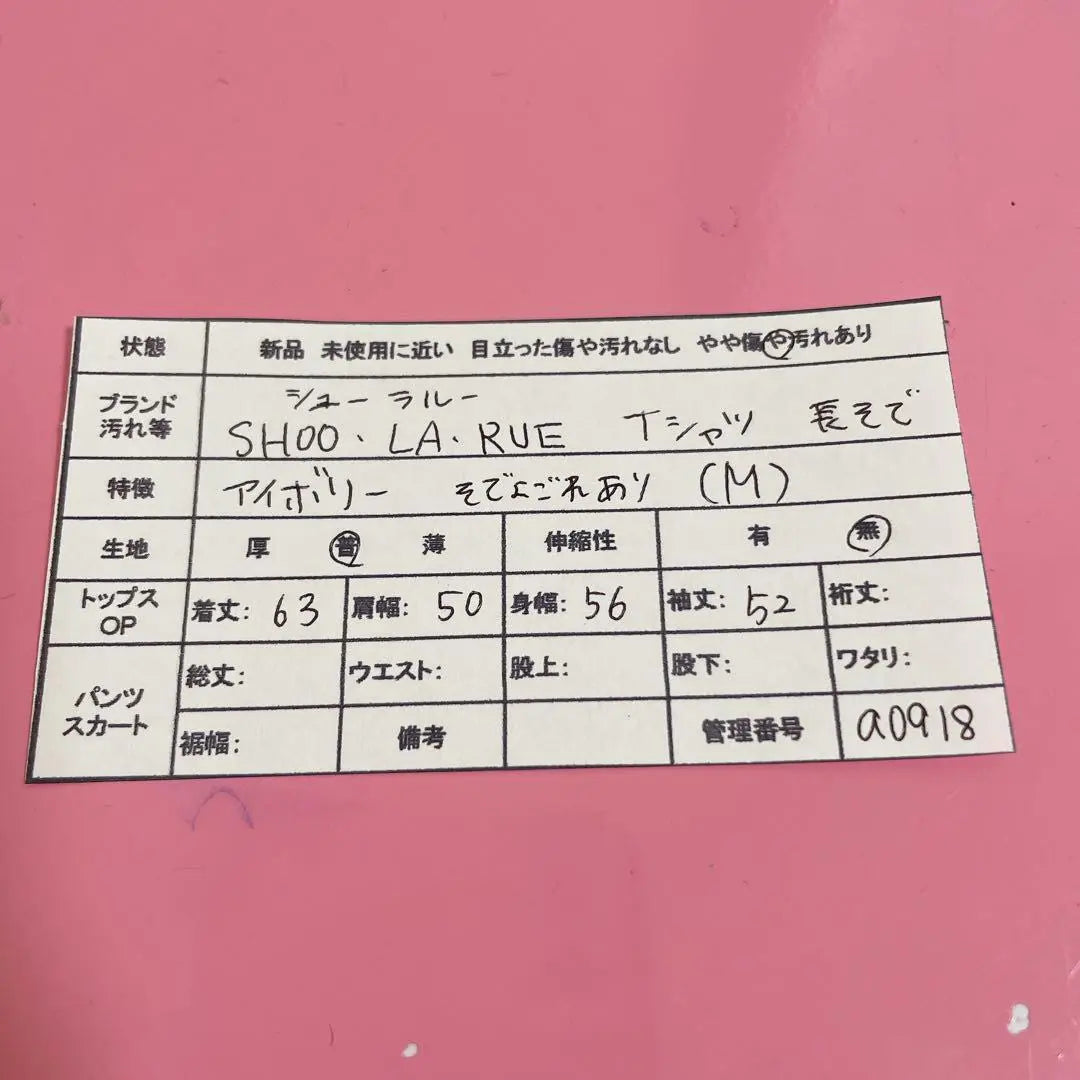 状態 新品 未使用に近い 目立った傷や汚れなし やや傷や汚れあり
ブランド 汚れ等 シューラルー
SHOO・LA・RUE Tシャツ 長そで
特徴 アイボリー そでよごれあり (M)
生地 厚 普 薄 伸縮性 有 無
トップス OP 着丈: 63 肩幅: 50 身幅: 56 袖丈: 52 裄丈:
パンツ スカート 総丈: ウエスト: 股上: 股下: ワタリ:
裾幅: 備考 管理番号 a0918